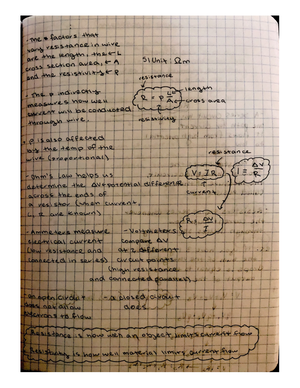 • The 3 factors that
vary resistance in wire
are the length, the L
cross section area, A
and the resistivity ρ
SI Unit: Ωm
resistance
R = ρ L/A
length
cross area
resistivity
• The ρ indirectly
measures how well
current will be conducted
through wire.
• ρ is also affected
by the temp of the
wire (proportional)
• Ohm's Law helps us
determine the ΔV potential difference
across the ends of
a resistor (when current,
I, R are known)
resistance
V = IR
current
I = ΔV/R
R = ΔV/I
• Ammeters measure
electrical current
(low resistance and
connected in series)
- Voltmeters
compare ΔV
at 2 different
circuit points
(high resistance
and connected parallel)
• an open circuit
does not allow
electrons to flow
- a closed circuit
does
Resistance is how well an object limits current flow
Resistivity is how well material limits current flow